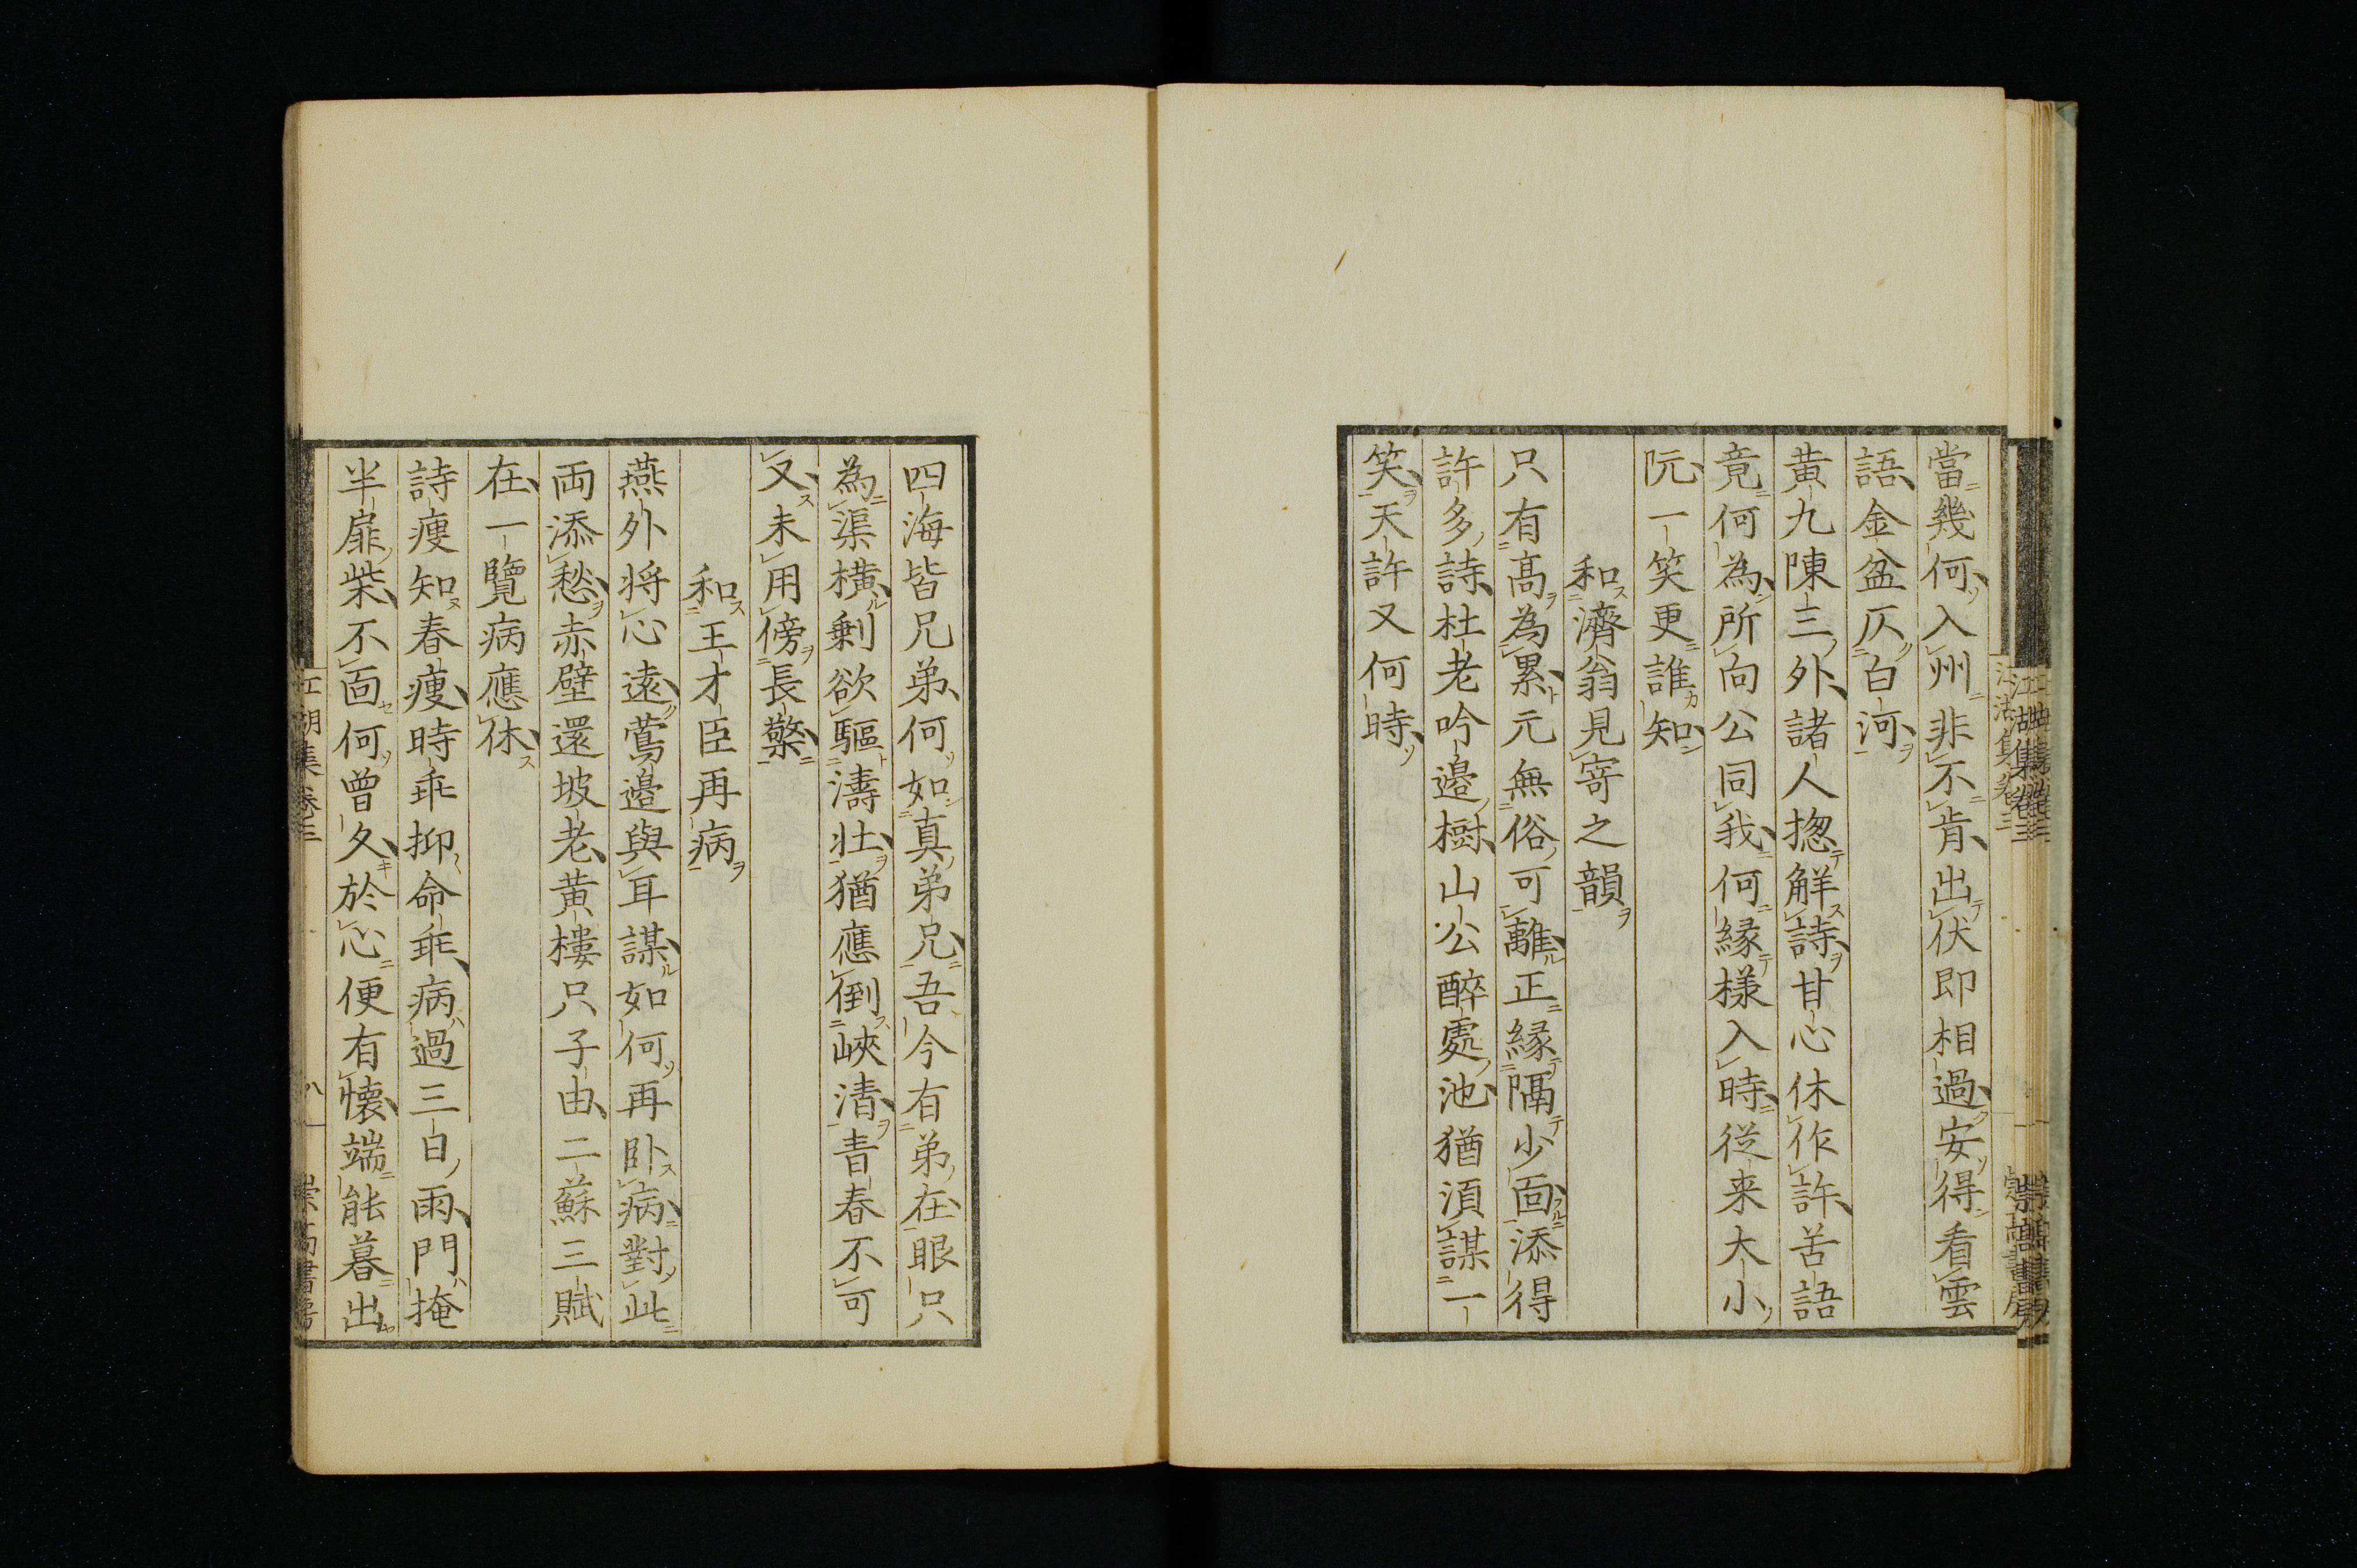 當幾何入州非不肯出伏即相過安得看雲
語金盆仄白河
黄九陳三外諸人揔解詩甘心休作許苦語
竟何為所向公同我何縁様入時従来大小
阮一笑更誰知
和濟翁見寄之韻
只有高為累元無俗可離正縁隔少面添得
許多詩杜老吟邉樹山公醉處池猶湏謀一
笑天許又何時
四海皆兄弟何如真弟兄吾今有弟在眼只
為渠横剰欲驅濤壮猶應倒峽清青春不可
又未用傍長檠
和王才臣再病
燕外将心遠鶯邉與耳謀如何再卧病對此
両添愁赤壁還坡老黄樓只子由二蘇三賦
在一覽病應休
詩瘦知春瘦時乖抑命乖病過三日雨門掩
半扉柴不面何曽久於心便有懐端能暮出
江湖集 巻三
八